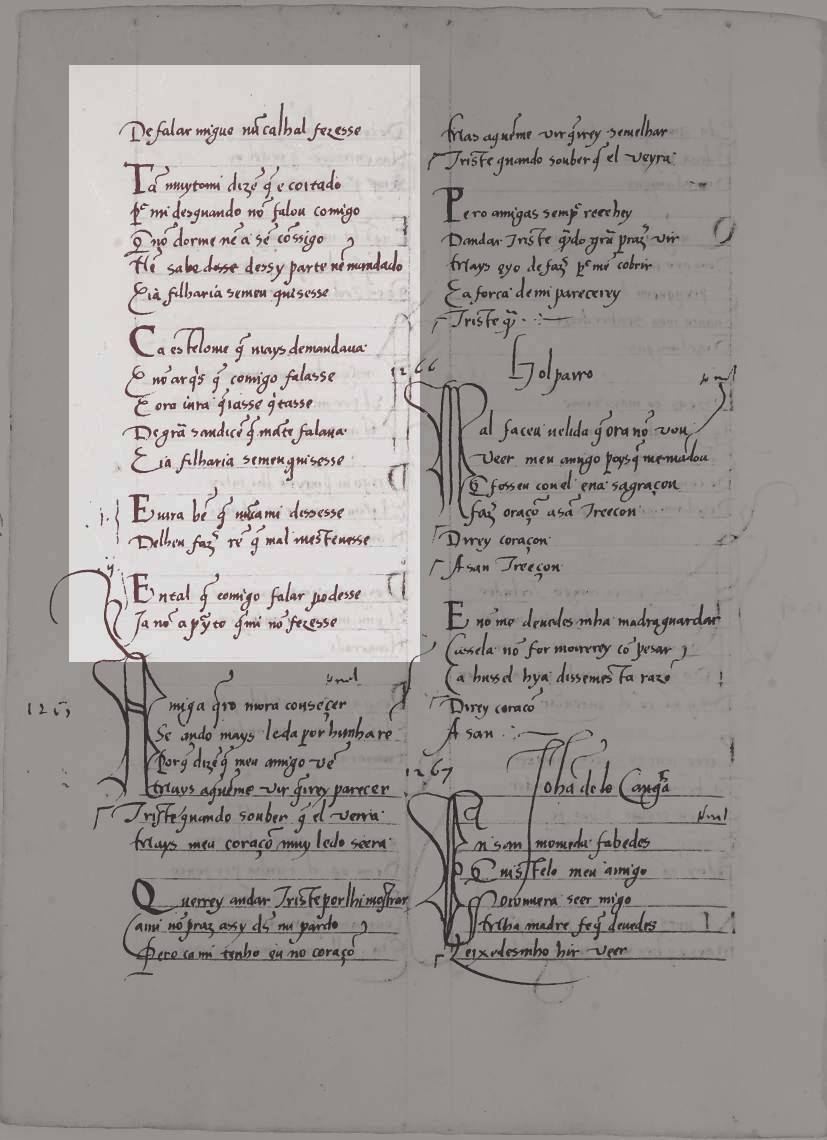 De falar miguo nū calhal fezesse
Tā muytomi dizē q̄ e coitado
por mi desquando nō falou comigo
Q̄ nō dorme nē a sē cōssigo
Nē sabe desse dessy parte nē mandado
E ia filharia semeu quisesse
Ca estelome q̄ mays demandaua
E nō arq̄s q̄ comigo falasse
E oro iura q̄iasse q̄tasse
De grā sandicē q̄ mate falaua
E ia filharia semeu quisesse
E uira bē q̄ nūcami dissesse
Delheu faz rē q̄ mal mestenesse
E ental q̄ comigo falar podesse
Ja nō a preyto q̄mi nō fezesse
1265
Amiga q̄ro mora conseçer
Se ando mays leda por hunha rē
Porq̄ dizē q̄ meu amigo uē
Mays aquēme uir q̄rrey parecer
Triste quando souber q̄ el uerra
Mays meu coraçō muy ledo seera
Querrey andar Triste por lhi mostrar
Ca mi nō praz assy ds̄ mi pardō
Pero cami tenho eu no coraçō
Mas aquēme uir q̄rrey semelhar
Triste quando souber q̄ el ueyra
Pero amigas semp̄ receey
Dandar Triste q̄do grā praz uir
Mays eyo de faz por mē cobrir
E a força de mi parecerey
Triste q̄
1266
Golparro
Mal faceu uelida q̄ ora nō uou
Veer meu amigo poys q̄ me mādou
Q̄ fosseu con el ena sagraçon
faz oraçō a sā Treeçon
Direy coraçon
A san Treeçon
E nō me deuedes mha madra guardar
Cassela nō for moirerey cō pesar
Ca hussel hya dissemesta razō
Direy coraçō
A san
1267
Johā de lo Cangas
En san momede sabedes
Q̄ uistelo meu amigo
Oiouuera seer migo
Mha madre fe q̄ deuedes
Leixedesmho hir ueer